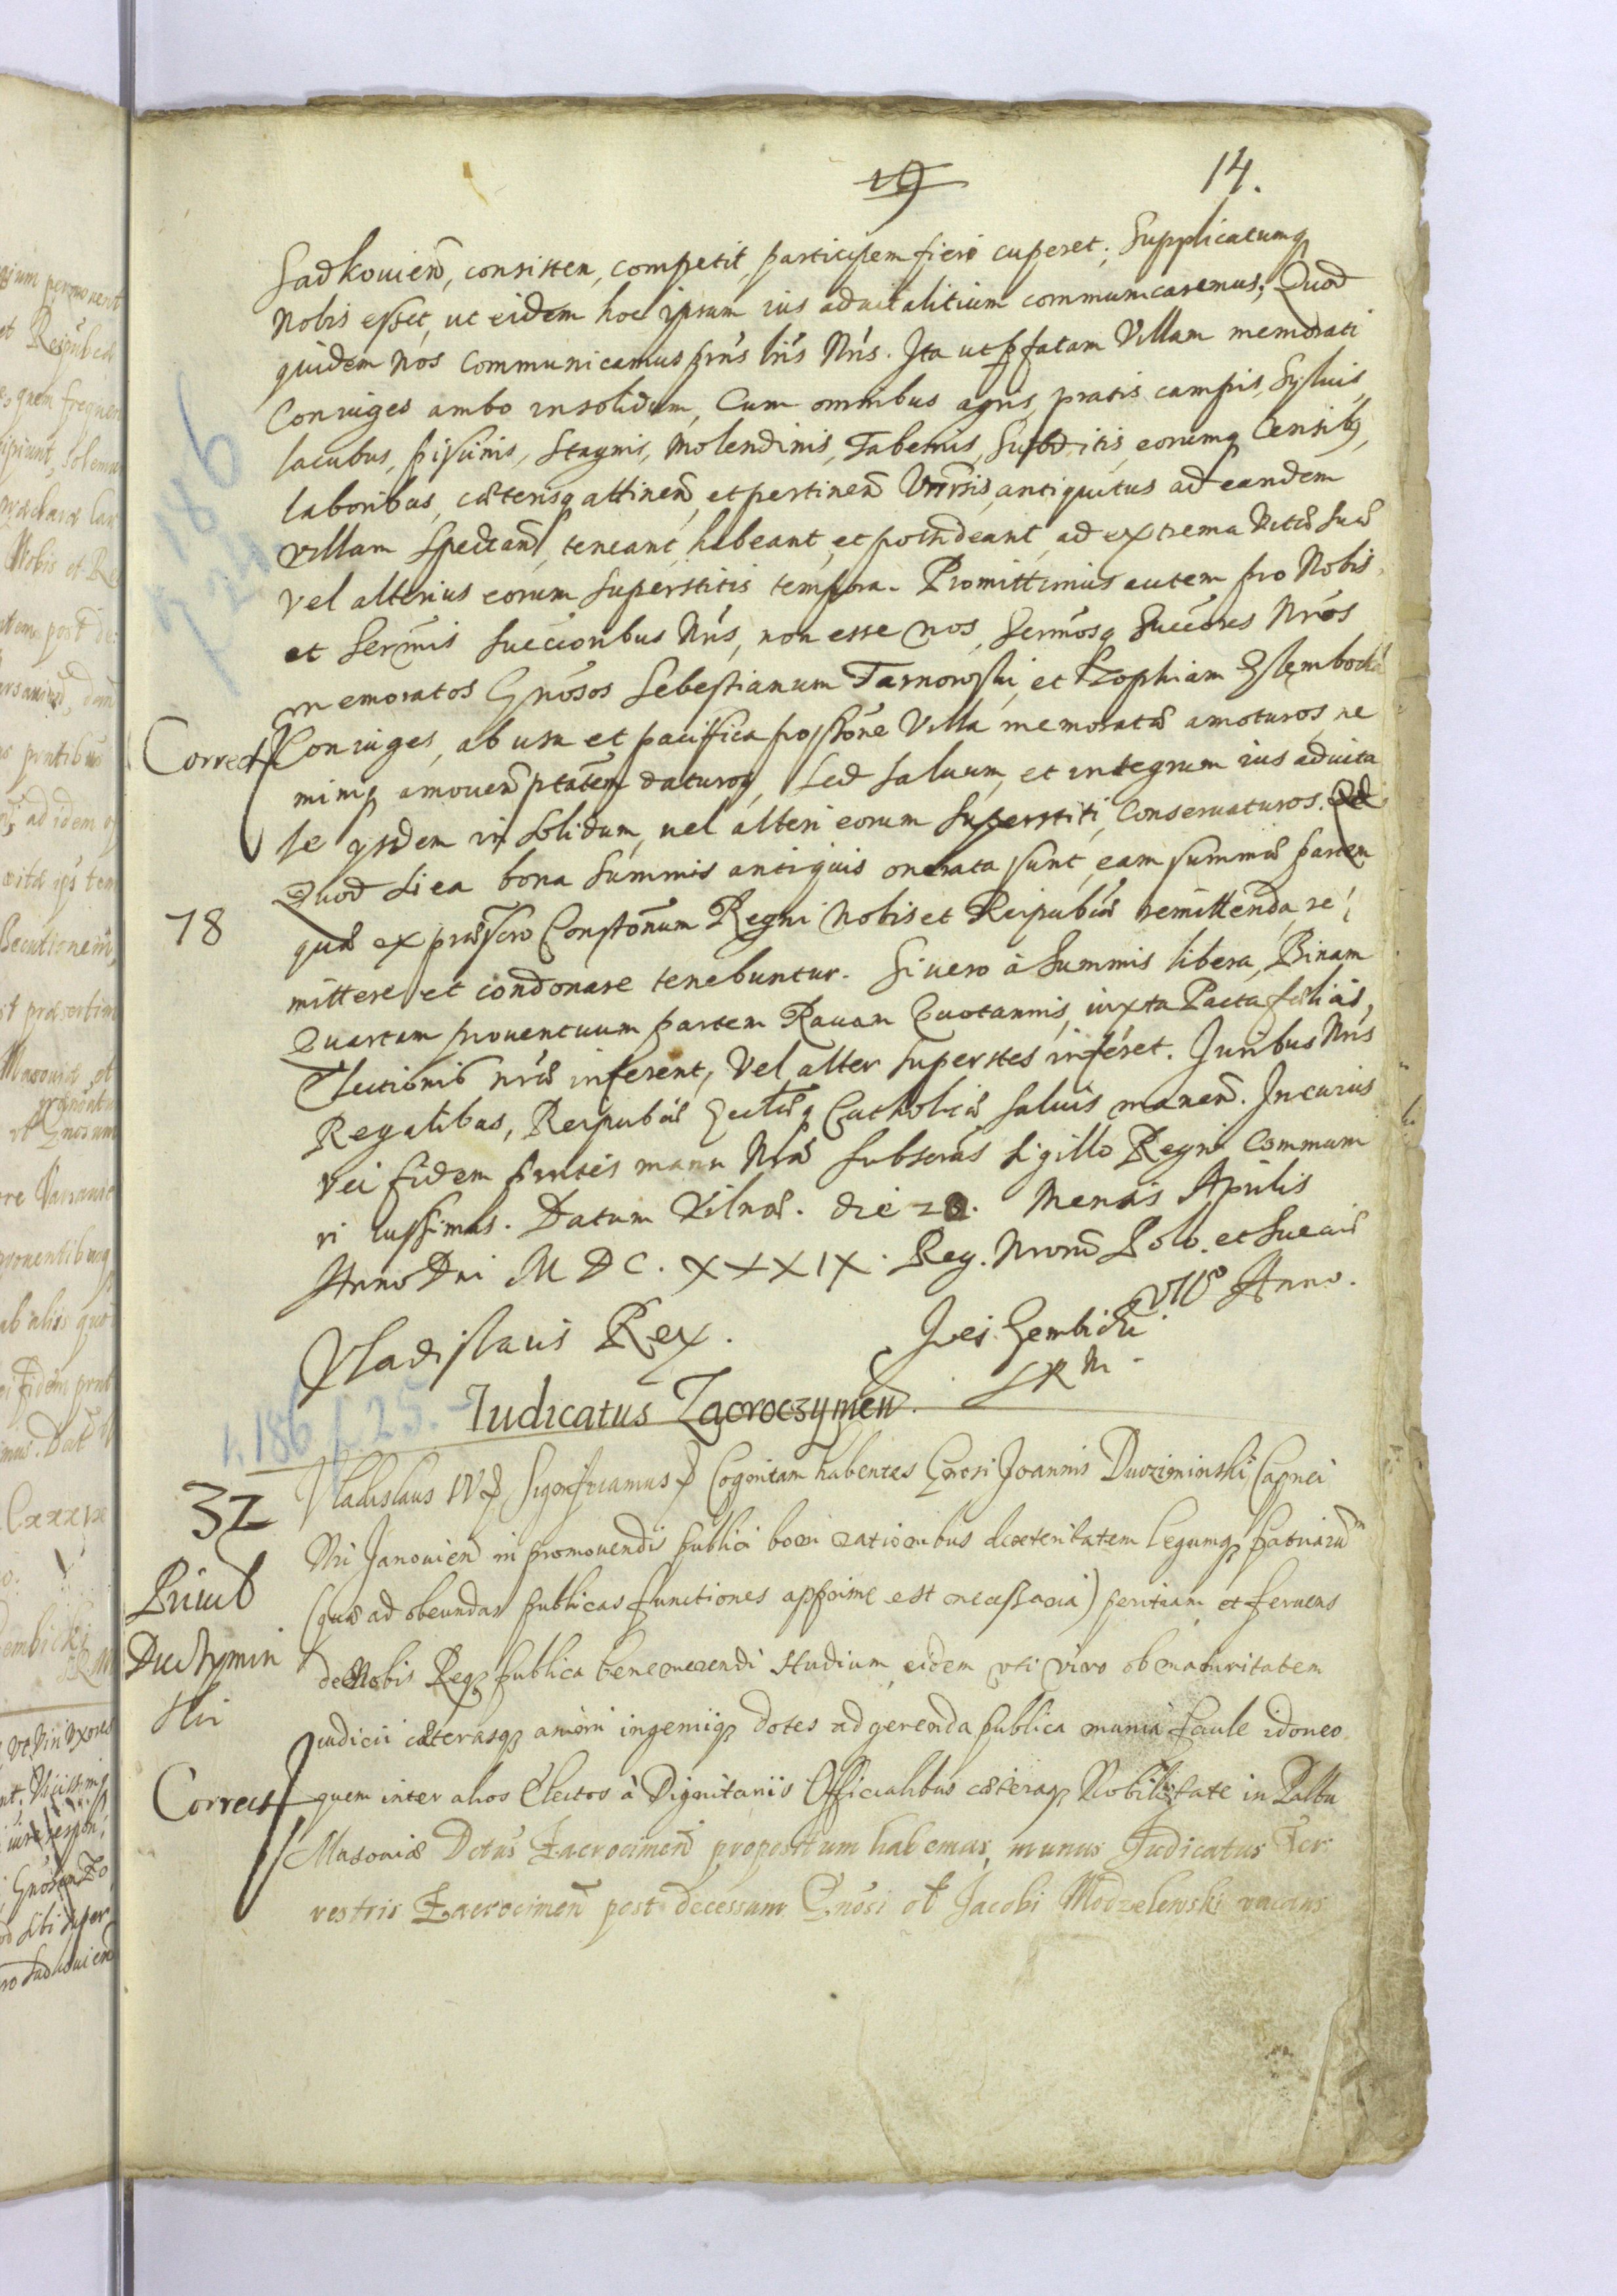 19 14.
Sadkouien, consisten, competit, participem fieri cuperet; Supplicatumq
Nobis esset, ut eidem hoc ipsum ius aduitalitium communicaremus; Quod
quidem nos communicamus pntis lris Nris. Ita ut pfatam Villam memorati
Coniuges ambo insolidum, Cum omnibus agris, pratis, campis, Syluis,
lacubus, piscinis, Stagnis, Molendinis, Tabernis, Subditis, eorumq Censibq,
laboribus, caeterisq attinen, et pertinen Vnirsis, antiquitus ad eandem
villam Spectan, teneant, habeant, et possideant, ad extrema Vitae suae
vel alterius eorum Superstitis tempora. Promittimus autem pro Nobis
et Sermis Succioribus Nris, non esse nos, Sermosq Succores Nros
memoratos Gnosos Sebestianum Tarnowski, et Zophiam
Correct Coniuges, ab usu et pacifica possone Villae memoratae amoturos, ne
miniq amouen ptatem daturos, Sed Saluum, et integrum ius aduita
le ysdem in Solidum, uel alteri eorum Superstiti, Conseruaturos.
Quod si ea bona Summis antiquis onerata sunt, eam summae partem
78 quae ex praescro Constonum Regni Nobis et Reipubcae remittenda, re
mittere, et condonare tenebuntur. Si uero à Summis libera, Binam
Quartam prouentuum partem Rauam Quotannis, iuxta Pacta faelicis,
Electionis nrae inferent, Vel alter superstes inferet. Juribus Nris
Regalibus, Reipubcae Ecclaeq Catholicae saluis manen. In cuius
rei fidem pntes manu Nra Subscras Sigillo Regni Communi
ri iussimus. Datum Vilnae. die 20. Mensis Aprilis
Anno Dni M D C. XXXIX. Reg. Nrorum Polo. et Sueciae
VII Anno.
Vladislaus Rex.
Gembicki
SRM.
1.186 f 25.
Iudicatus Zacroczymen.
32 Vladislaus IV Significamus Cognitam habentes Gnosi Joannis Duczyminski, Capnei
Nri Janouien in promouendis publici boni rationibus dexteritatem legumq patriarum
Priuil (quae ad obeundas publicas functiones apprime est necessaria) peritiam, et feruens
Duczymin de Nobis Req publica benemerendi Studium, eidem vti viro ob maturitatem
ski iudicii caeterasq animi ingeniiq dotes ad gerenda publica munia facile idoneo
Correct quem inter alios Electos à Dignitariis Officialibus caeteraq Nobilitate in Palttu
Masouiae Dctus Zacrocimen propositum habemus, munus Iudicatus Ter
restris Zacrocimen post decessum Gnosi ol Jacobi Modzelewski vacans